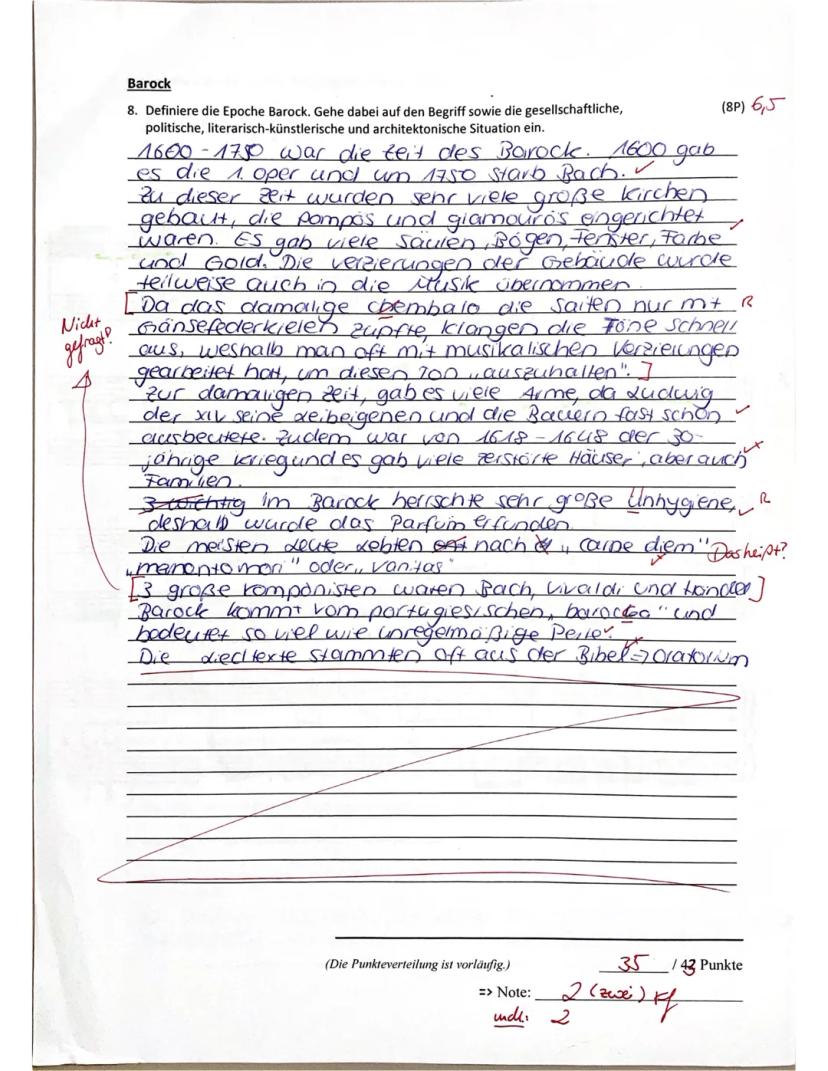 Barock
8. Definiere die Epoche Barock. Gehe dabei auf den Begriff sowie die gesellschaftliche, (8P) 6,5
politische, literarisch-künstlerische und architektonische Situation ein.
1600 - 1750 war die Zeit des Barock. 1600 gab
es die 1. Oper und um 1750 starb Bach.
Zu dieser Zeit wurden sehr viele große Kirchen
gebaut, die pompös und glamourös eingerichtet
waren. Es gab viele Säulen, Bögen, Fenster, Farbe
und Gold. Die Verzierungen der Gebäude wurde
teilweise auch in die Musik übernommen.
[Da das damalige Cembalo die Saiten nur mit R
Nicht gefragt?
Gänsefederkielen zupfte, klangen die Töne schnell
aus, weshalb man oft mit musikalischen Verzierungen
gearbeitet hat, um diesen Ton „auszuhalten".]
Zur damaligen Zeit, gab es viele Arme, da Ludwig
der XIV seine Leibeigenen und die Bauern fast schon
ausbeutete. Zudem war von 1618 - 1648 der 30-
jährige Krieg und es gab viele zerstörte Häuser, aber auch
Familien.
3 wichtig Im Barock herrschte sehr große Unhygiene, R
deshalb wurde das Parfüm erfunden.
Die meisten Leute lebten oft nach „carpe diem" Das heißt?
„memonto mori" oder „vanitas"
[3 große Komponisten waren Bach, Vivaldi und Händel]
Barock kommt vom portugiesischen „barocco" und
bedeutet so viel wie unregelmäßige Perle.
Die Liedtexte stammten oft aus der Bibel => Oratorium
(Die Punkteverteilung ist vorläufig.) 35 / 43 Punkte
=> Note: 2 (zwei)
mdl: 2